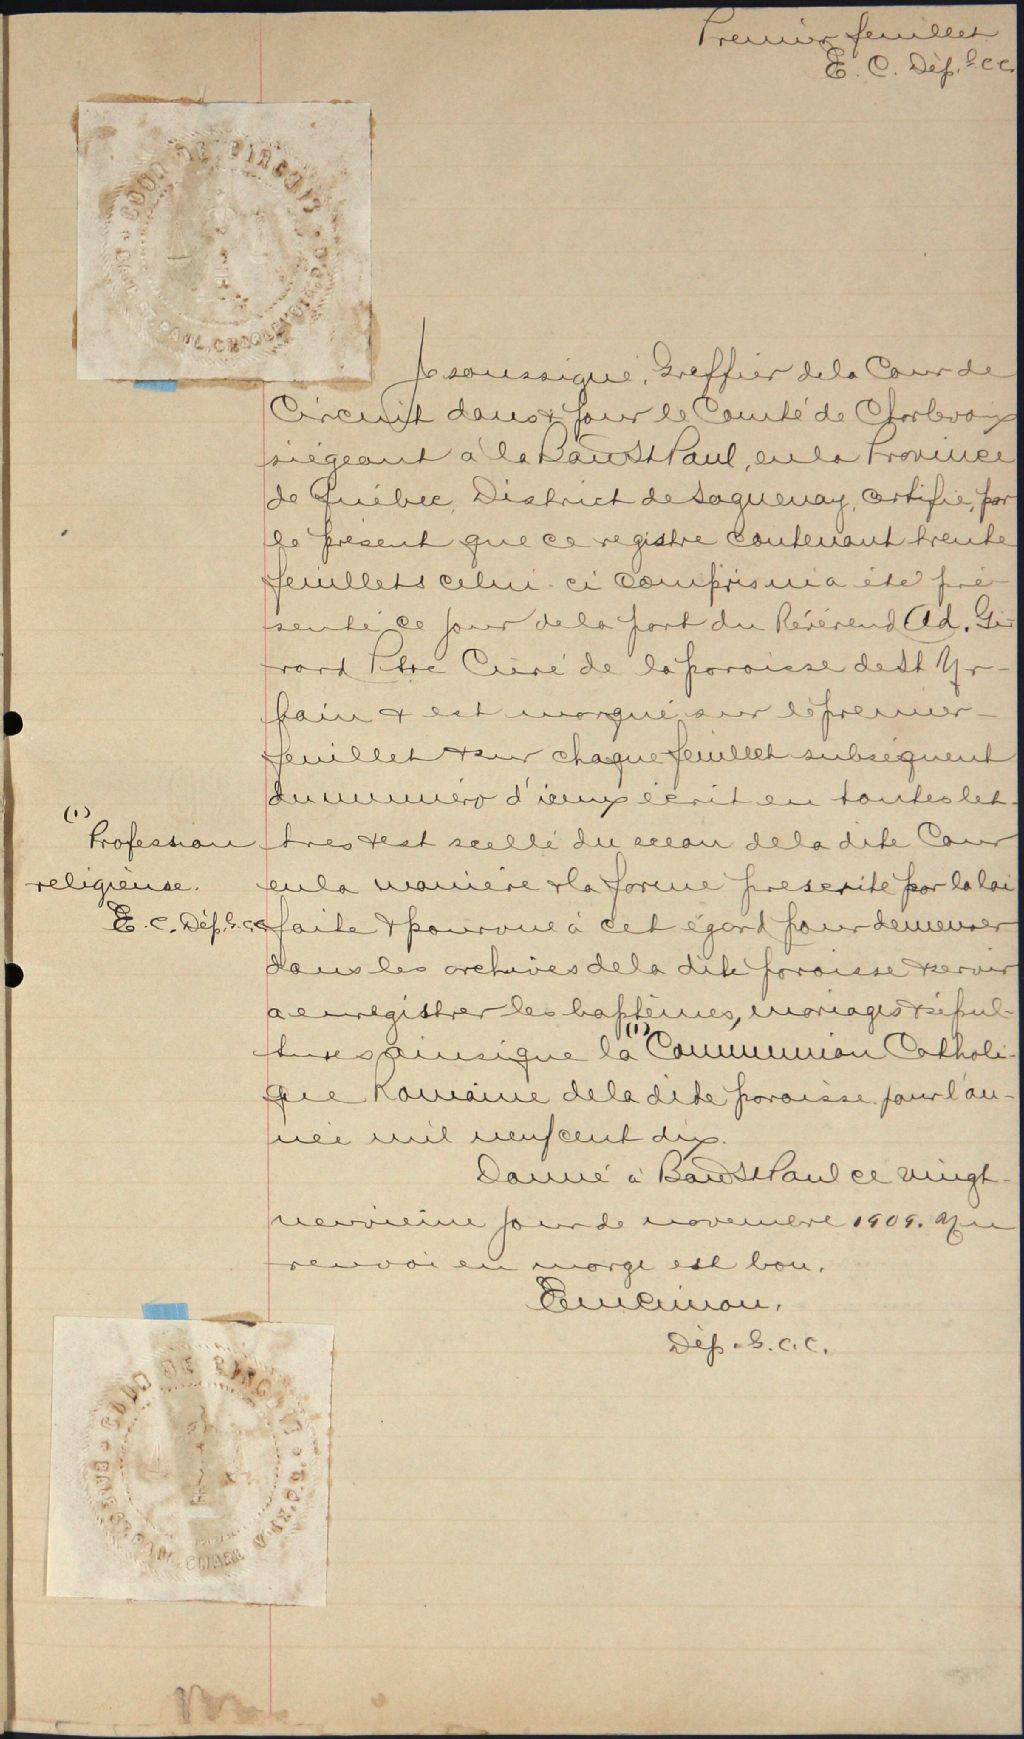 Premier feuillet
E. C. Dép. G.C.C.
COUR DE CIRCUIT
BAIE ST. PAUL, CHARLEVOIX, P.Q.
Je soussigné, Greffier de la Cour de
Circuit dans & pour le Comté de Charlevoix
siégeant à la Baie St Paul, en la Province
de Québec, District de Saguenay, certifie, par
le présent que ce registre contenant trente
feuillets celui-ci compris m'a été pré-
senté ce jour de la part du Révérend Ad. Gi-
rard Ptre Curé de la paroisse de St Ur-
bain & est marqué sur le premier
feuillet & sur chaque feuillet subséquent
du numéro d'iceux écrit en toutes let-
tres & est scellé du sceau de la dite Cour
en la manière & la forme prescrite par la loi
faite & pourvue à cet égard pour demeurer
dans les archives de la dite paroisse & servir
a enregistrer les baptêmes, mariages & sépul-
tures ainsi que la (1) Communion Catholi-
que Romaine de la dite paroisse pour l'an-
née mil neuf cent dix.
(1)
Profession
religieuse.
E. C. Dép. G.C.C.
Donné à Baie St Paul ce vingt-
neuvième jour de novembre 1909. Un
renvoi en marge est bon.
Em Cimon.
Dép. G.C.C.
COUR DE CIRCUIT
BAIE ST. PAUL, CHARLEVOIX, P.Q.